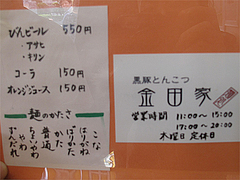 びんビール 550円
・アサヒ
・キリン
コーラ 150円
オレンジジュース 150円
麺のかたさ
こな
はりがね
ばりかた
かた
普通
ちょいやわ
やわ
ずんだれ
黒豚とんこつ
金田家
営業時間 11:00～15:00
17:00～20:00
木曜日 定休日